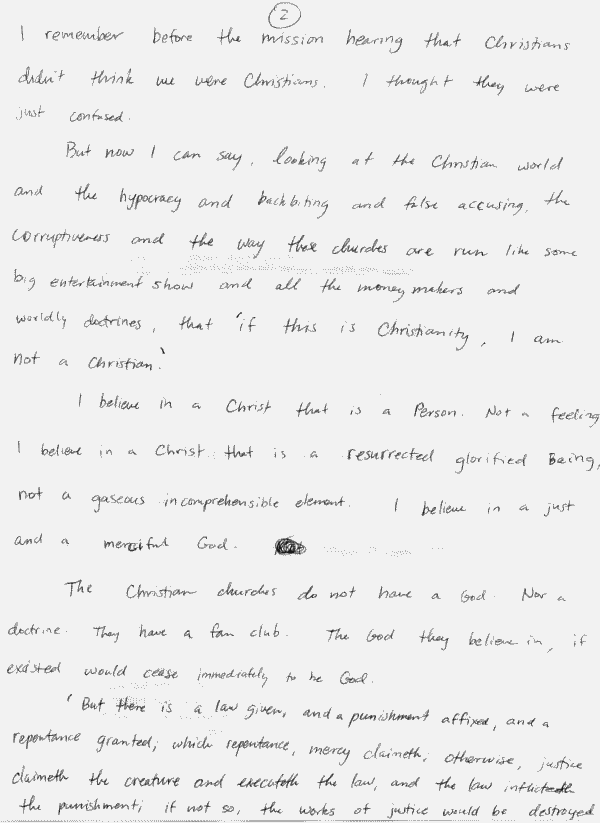 2
I remember before the mission hearing that Christians
didn't think we were Christians. I thought they were
just confused.
But now I can say, looking at the Christian world
and the hypocracy and backbiting and false accusing, the
corruptiveness and the way these churches are run like some
big entertainment show and all the money makers and
worldly doctrines, that 'if this is Christianity, I am
not a Christian.'
I believe in a Christ that is a Person. Not a feeling
I believe in a Christ that is a resurrected glorified Being,
not a gaseous incomprehensible element. I believe in a just
and a merciful God.
The Christian churches do not have a God. Nor a
doctrine. They have a fan club. The God they believe in, if
existed would cease immediately to be God.
'But there is a law given, and a punishment affixed, and a
repentance granted; which repentance, mercy claimeth; otherwise, justice
claimeth the creature and executeth the law, and the law inflicteth
the punishment; if not so, the works of justice would be destroyed